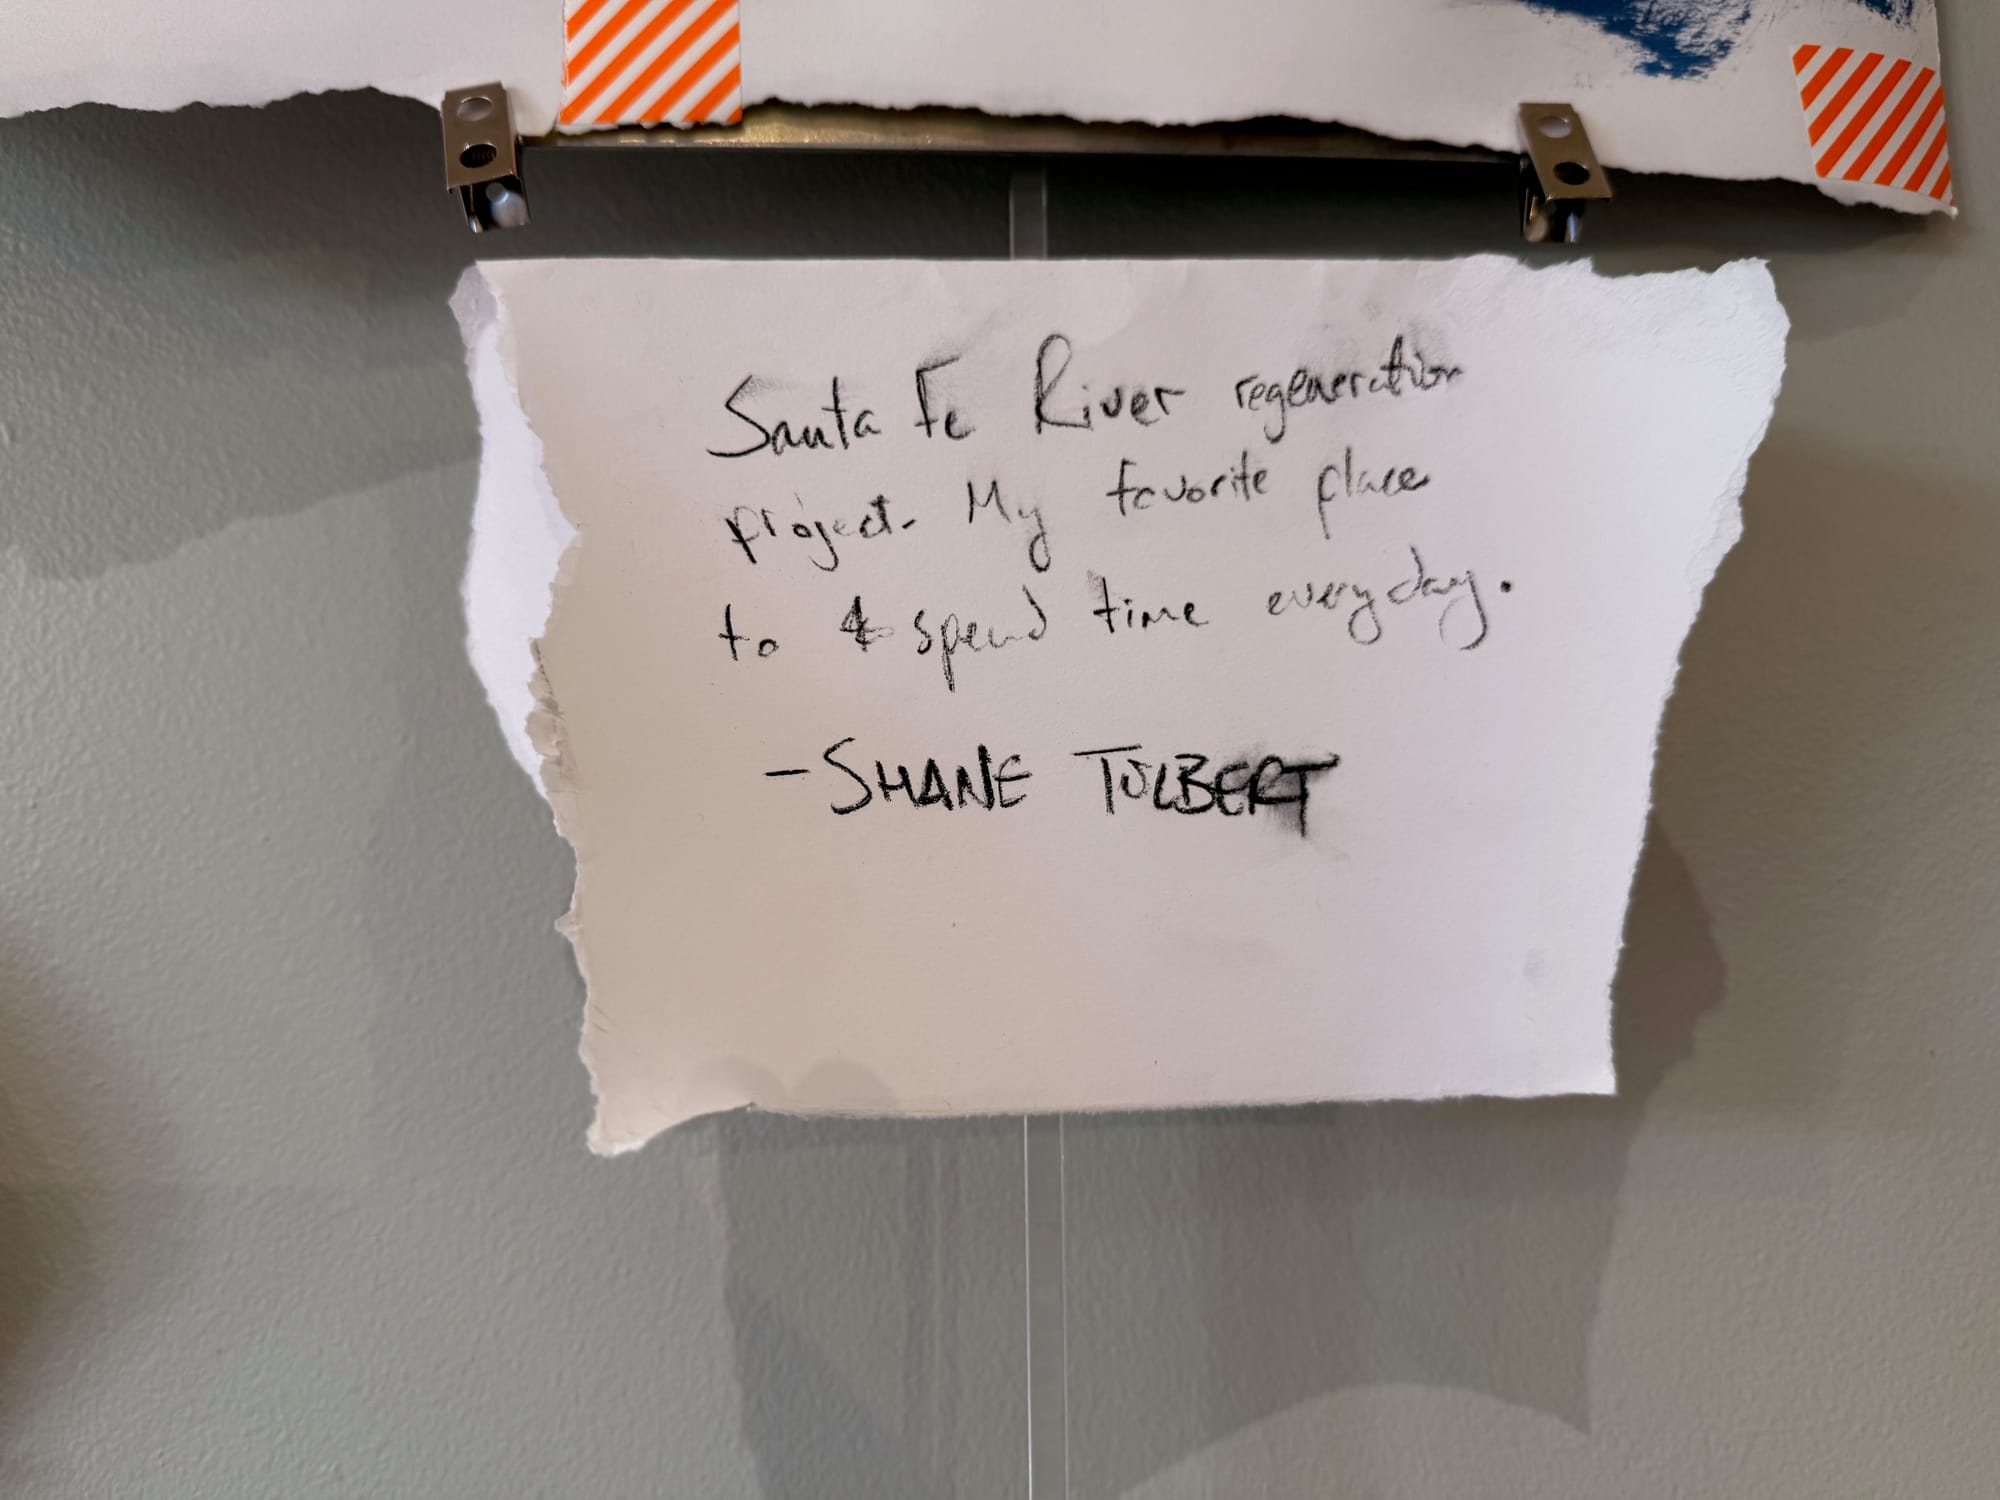 Santa Fe River regeneration
project. My favorite place
to spend time everyday.
- SHANE TOLBERT